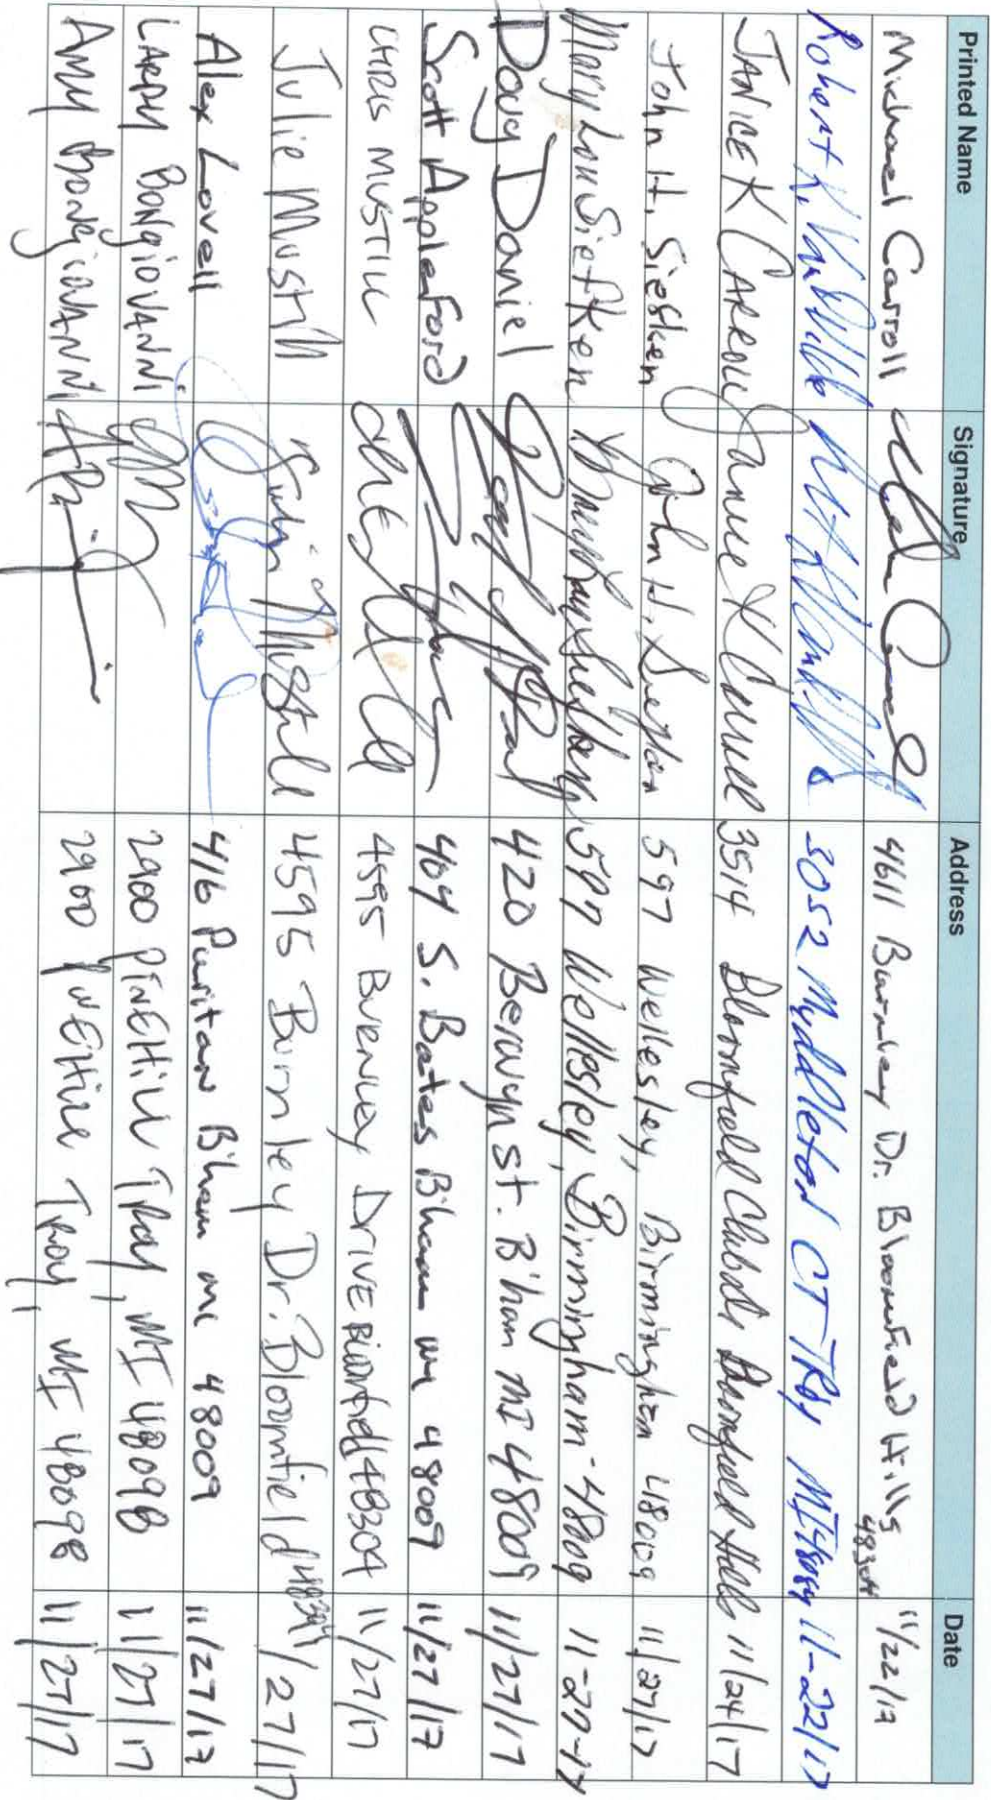 Printed Name Signature Address Date
Michael Carroll 4611 Burnley Dr. Bloomfield Hills 48304 11/22/17
Robert K. 3052 Myddleton CT TRoy MI 11-22/17
JANICE K CARROLL Janice K Carroll 3514 Bloomfield Club Dr. Bloomfield Hills 11/24/17
John H. Siefken John H. Siefken 597 Wellesley, Birmingham 48009 11/27/17
Mary Lou Siefken Mary Lou Siefken 597 Wellesley, Birmingham 48009 11-27-17
Doug Daniel 420 Berwyn st. B'ham MI 48009 11/27/17
Scott AppleFord 464 S. Bates B'ham mi 48009 11/27/17
CHRIS MUSTILL 4595 BURNLEY DRIVE Bloomfield 48304 11/27/17
Julie Mustill Julie Mustill 4595 Burnley Dr. Bloomfield 48304 11/27/17
Alex Lovell 416 Puritan B'ham mi 48009 11/27/17
LARRY BONGIOVANNI 2900 PINEHILL TROY, MI 48098 11/27/17
AMY BONGIOVANNI 2900 PINEHILL TROY, MI 48098 11/27/17